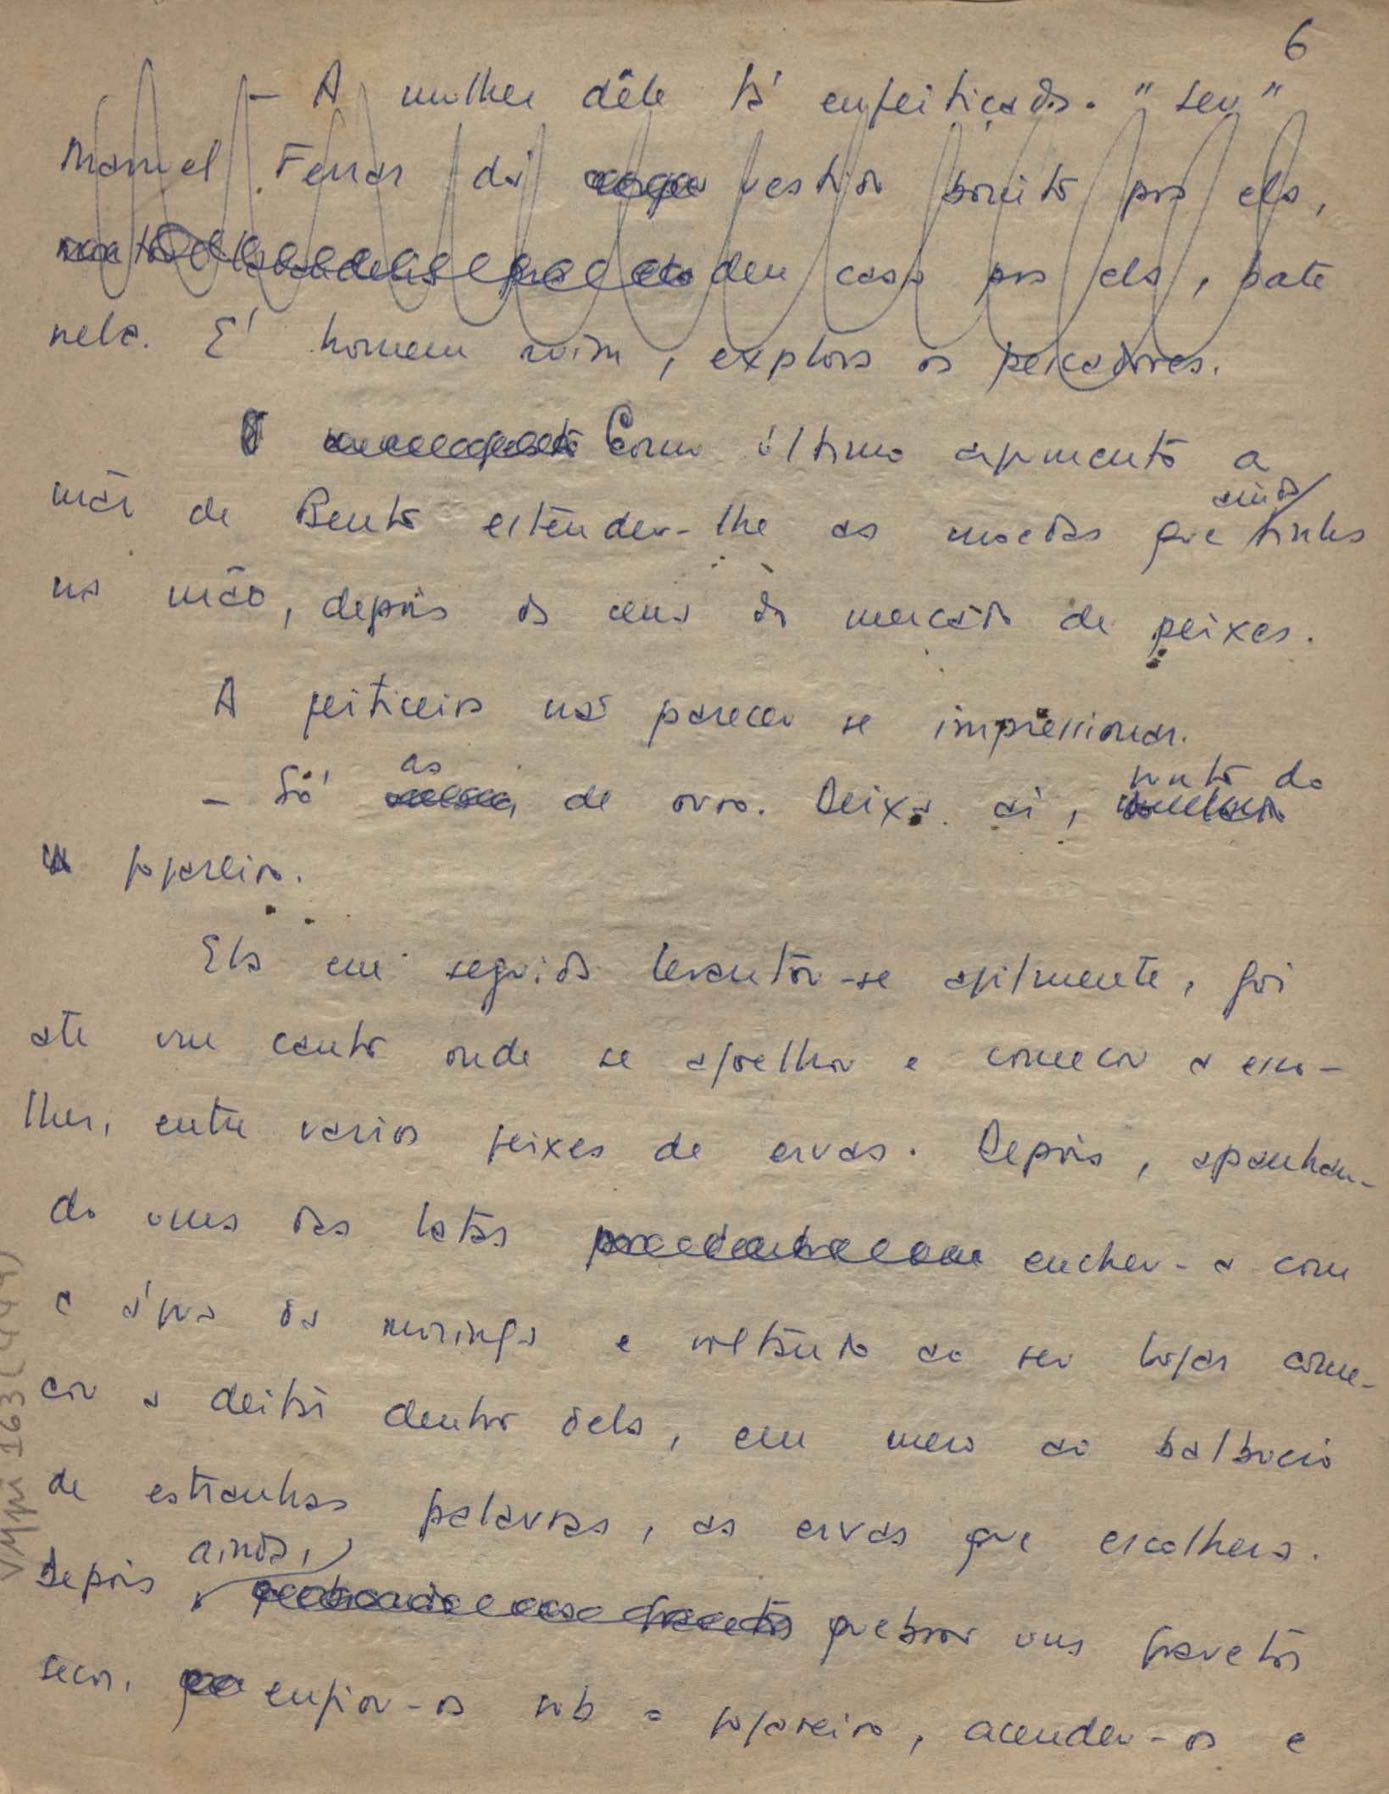 6
— A mulher dêle tá enfeitiçada. "seu"
Manuel Ferraz dá vestido bonito pra ela,
deu casa pra ela, bate
nela. É homem ruim, explora os pescadores.
Como último argumento a
mãe de Bento estendeu-lhe as moedas que ainda tinha
na mão, depois da cena do mercado de peixes.
A feiticeira não pareceu se impressionar.
— Só as de ouro. Deixa aí, perto do
fogareiro.
Ela em seguida levantou-se agilmente, foi
até um canto onde se ajoelhou e começou a esco-
lher, entre varios feixes de ervas. Depois, apanhan-
do uma das latas encheu-a com
a água da moringa e voltando ao seu lugar come-
çou a deitar dentro dela, em meio ao balbucio
de estranhas palavras, as ervas que escolhera.
Depois ainda, quebrou uns gravetos
secos, enfiou-os sob o fogareiro, acendeu-os e
VMpi 163(449)